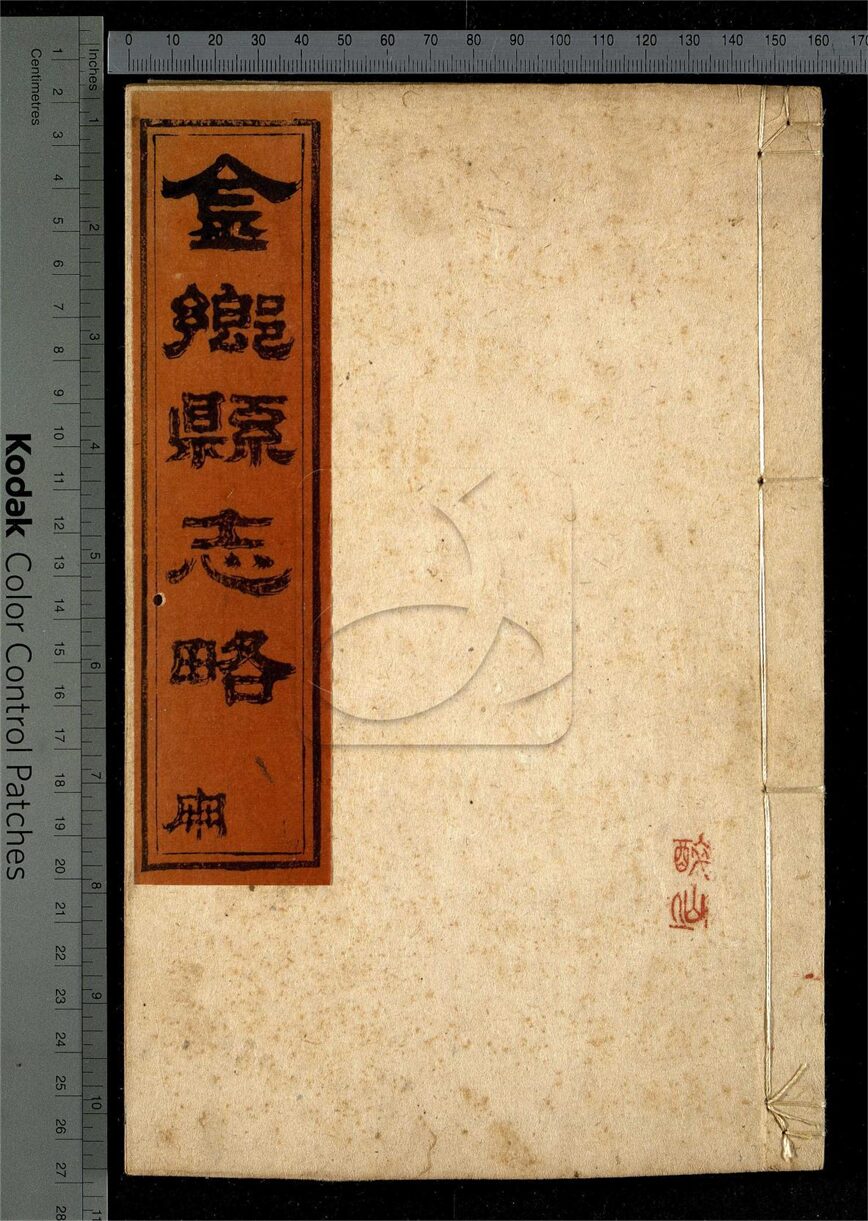 金鄉縣志略
Kodak Color Control Patches
Inches
Centimetres
0 10 20 30 40 50 60 70 80 90 100 110 120 130 140 150 160 170
1 2 3 4 5 6 7 8 9 10 11
1 2 3 4 5 6 7 8 9 10 11 12 13 14 15 16 17 18 19 20 21 22 23 24 25 26 27 28